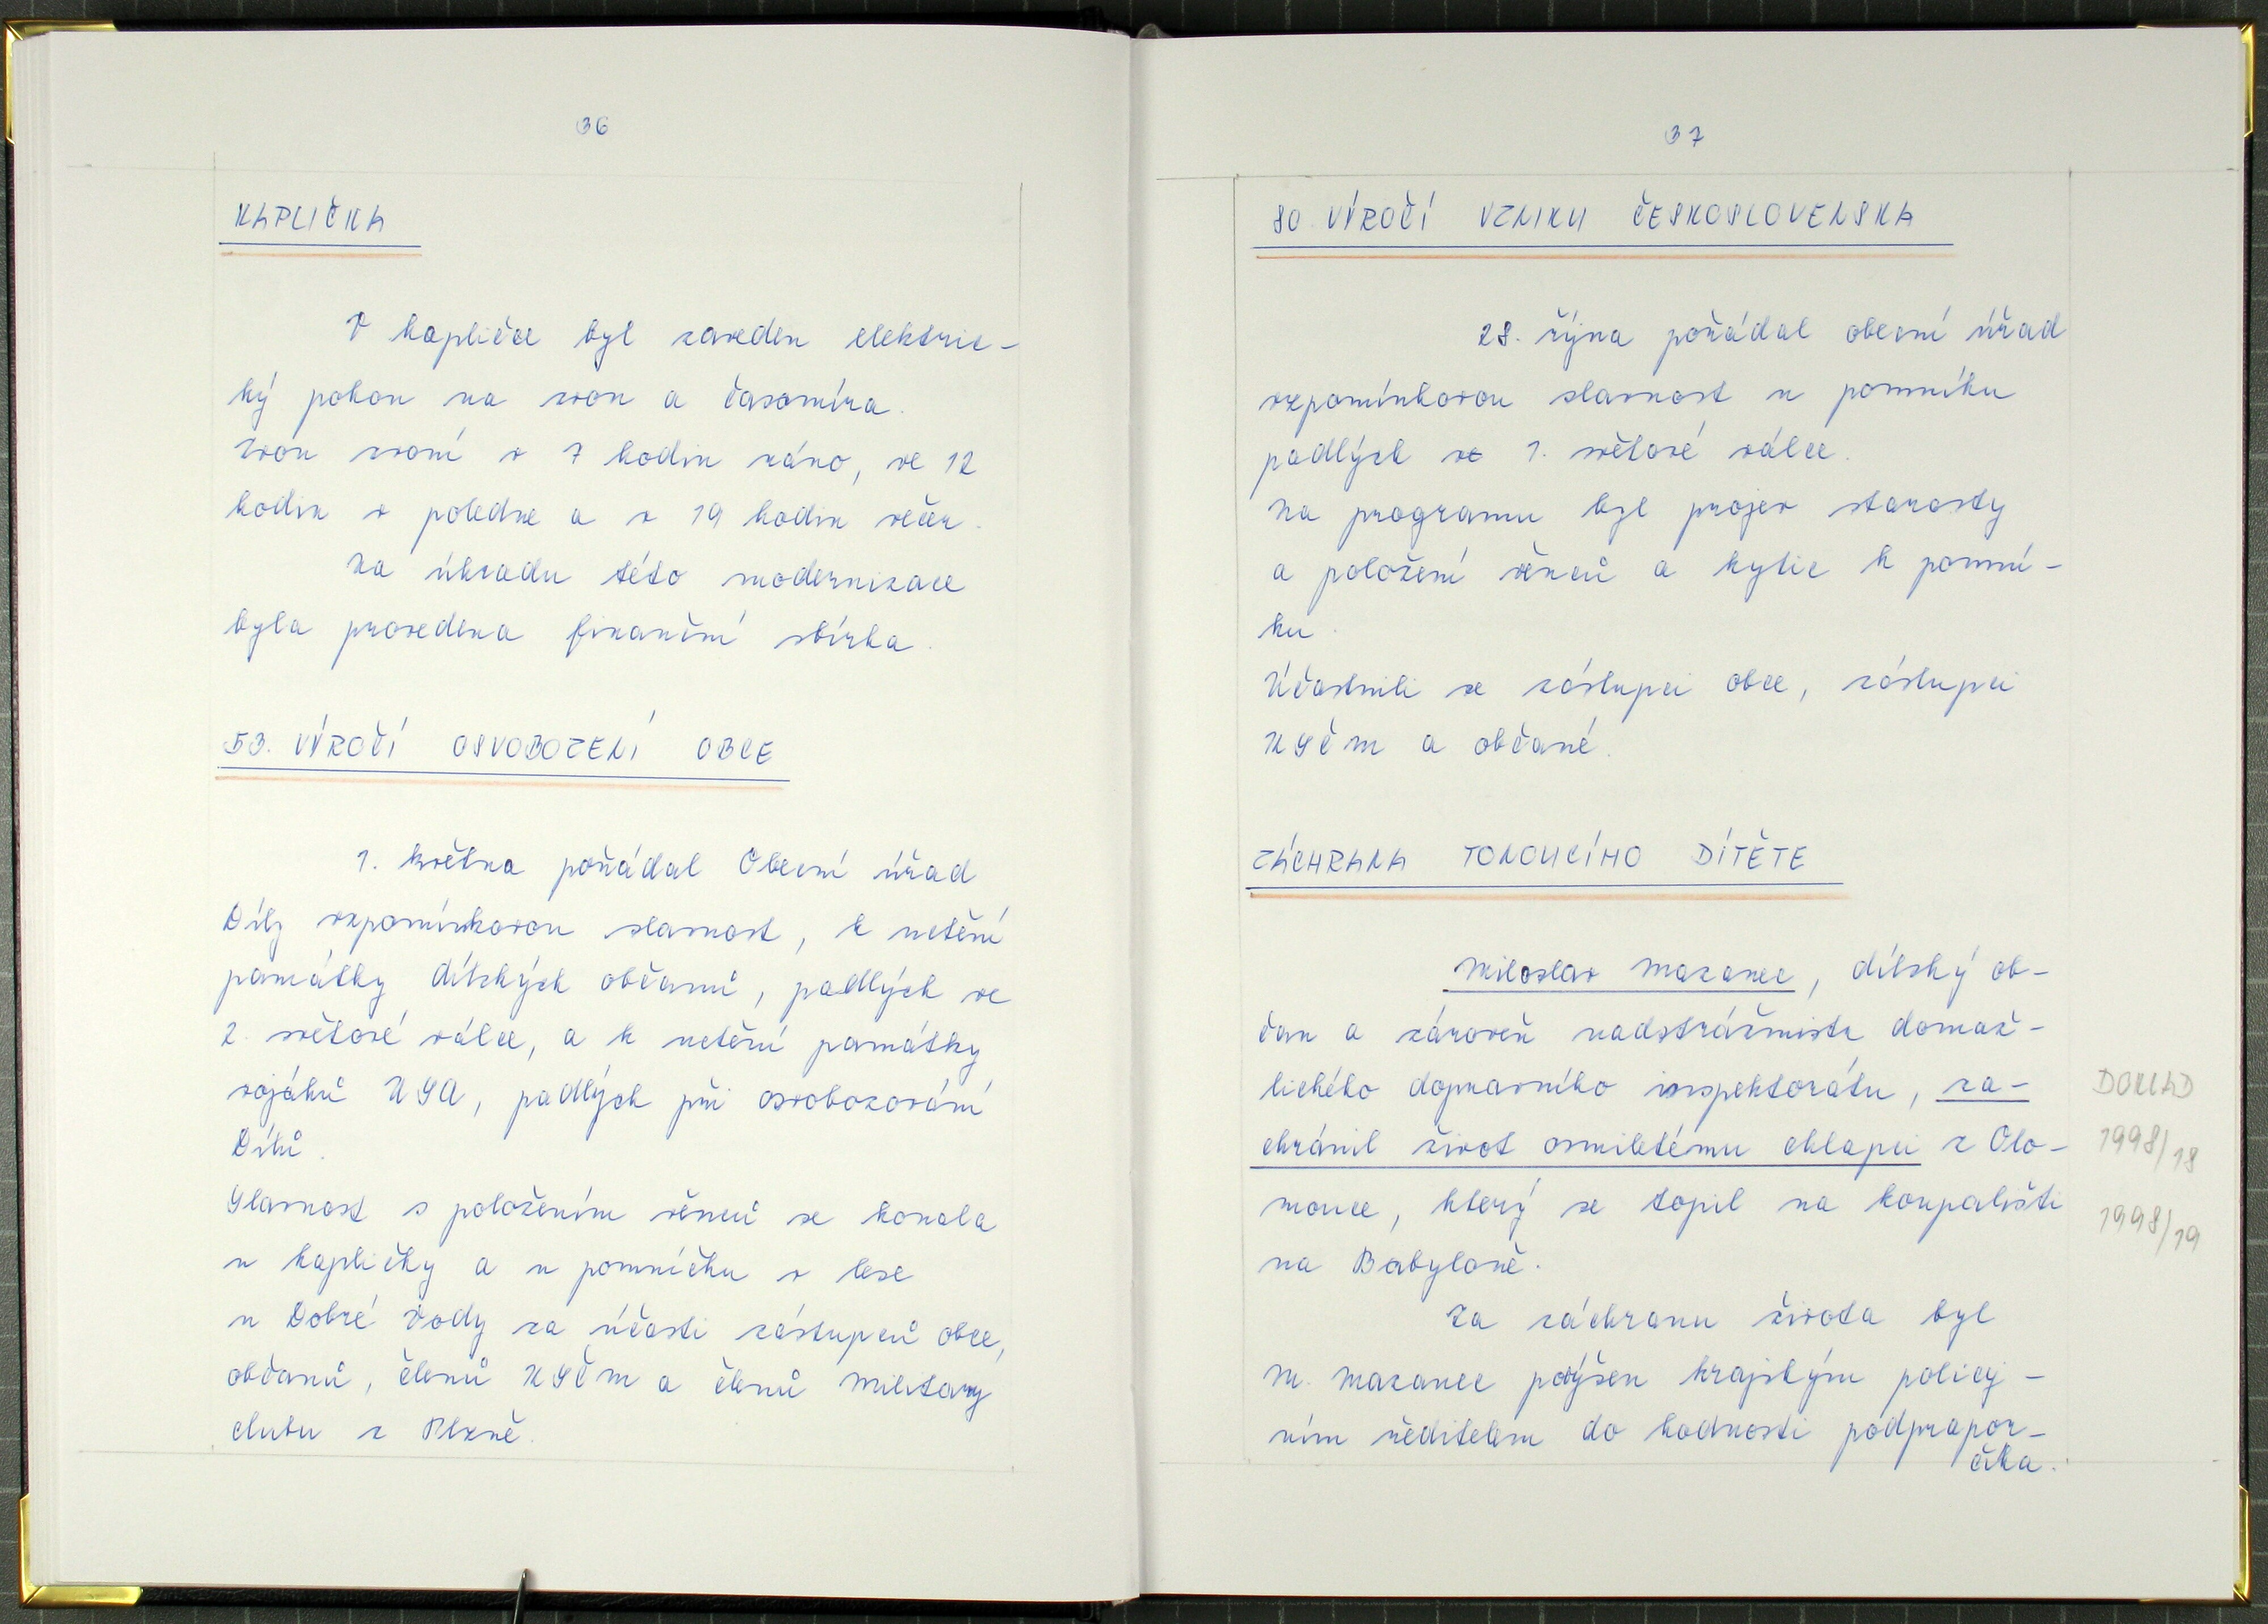 36
KAPLIČKA
V kapličce byl zaveden elektric-
ký pohon na zvon a časomíra.
Zvon zvoní v 7 hodin ráno, ve 12
hodin v poledne a v 19 hodin večer.
Na úhradu této modernizace
byla provedena finanční sbírka.
53. VÝROČÍ OSVOBOZENÍ OBCE
1. května pořádal Obecní úřad
Díly vzpomínkovou slavnost, k uctění
památky dílských občanů, padlých ve
2. světové válce, a k uctění památky
vojáků USA, padlých při osvobozování
Dílů.
Slavnost s položením věnců se konala
u kapličky a u pomníčku v lese
u Dobré Vody za účasti zástupců obce,
občanů, členů KSČM a členů Military
clubu z Plzně.
37
80. VÝROČÍ VZNIKU ČESKOSLOVENSKA
28. října pořádal obecní úřad
vzpomínkovou slavnost u pomníku
padlých v 1. světové válce.
Na programu byl projev starosty
a položení věnců a kytic k pomní-
ku.
Účastnili se zástupci obce, zástupci
KSČM a občané.
ZÁCHRANA TONOUCÍHO DÍTĚTE
Miloslav Mazanec, dílský ob-
čan a zároveň nadstrážmistr domaž-
lického dopravního inspektorátu, za-
chránil život osmiletému chlapci z Olo-
mouce, který se topil na koupališti
na Babyloně.
Za záchranu života byl
M. Mazanec povýšen krajským policej-
ním ředitelem do hodnosti podprapor-
číka.
DOKLAD
1998/18
1998/19